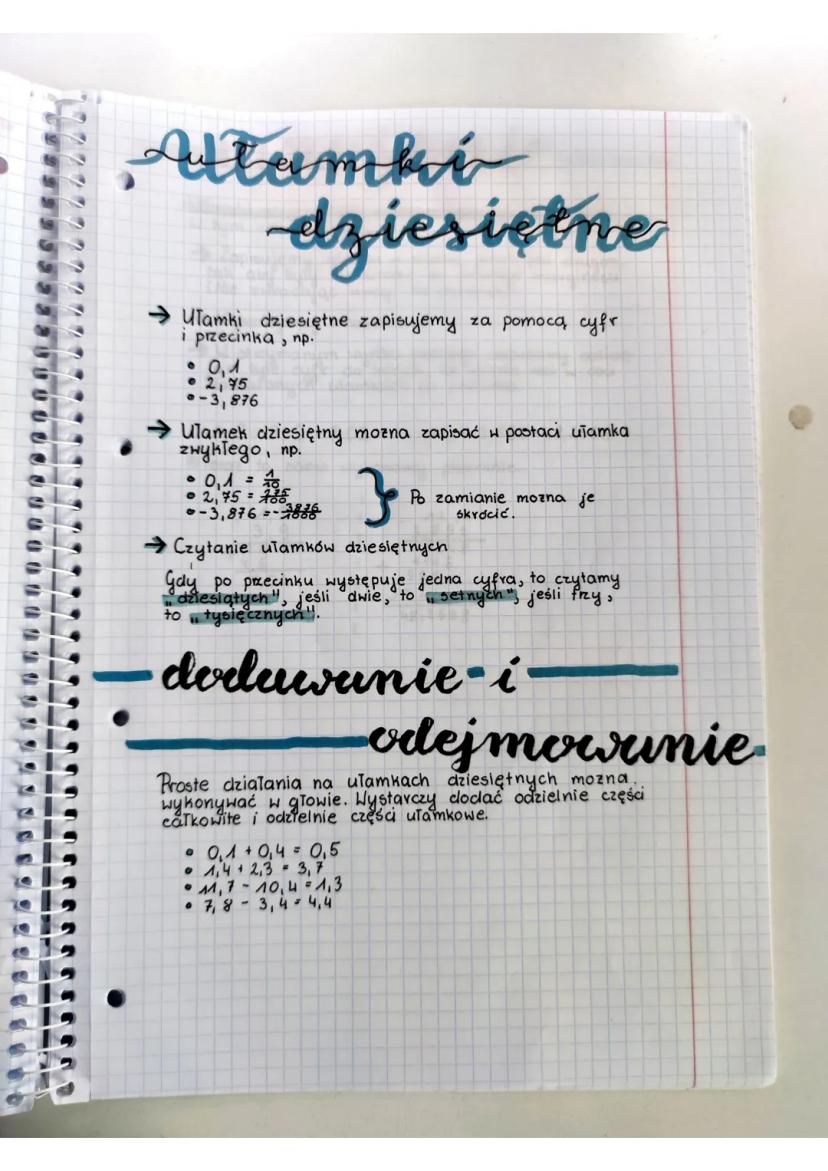 Ułamki
dziesiętne
→ Ułamki dziesiętne zapisujemy za pomocą cyfr
i przecinka, np.
• 0,1
• 2,75
• -3,876
→ Ułamek dziesiętny można zapisać w postaci ułamka
zwykłego, np.
• 0,1 = 1/10
• 2,75 = 275/100
• -3,876 = -3876/1000
Po zamianie można je
skrócić.
→ Czytanie ułamków dziesiętnych
Gdy po przecinku występuje jedna cyfra, to czytamy
„dziesiątych", jeśli dwie, to „setnych", jeśli trzy,
to „tysięcznych".
dodawanie i
odejmowanie
Proste działania na ułamkach dziesiętnych można
wykonywać w głowie. Wystarczy dodać odzielnie części
całkowite i odzielnie części ułamkowe.
• 0,1 + 0,4 = 0,5
• 1,4 + 2,3 = 3,7
• 11,7 - 10,4 = 1,3
• 7,8 - 3,4 = 4,4